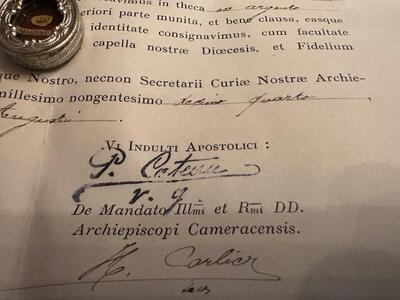 cavimus in theca ex argento
eriori parte munita, et bene clausa, easque
identitate consignavimus, cum facultate
capella nostræ Diœcesis, et Fidelium
que Nostro, necnon Secretarii Curiæ Nostræ Archie-
millesimo nongentesimo decimo quarto
Augusti
VI INDULTI APOSTOLICI :
v. g.
De Mandato Illmi et Rmi DD.
Archiepiscopi Cameracensis.
H. Carlier